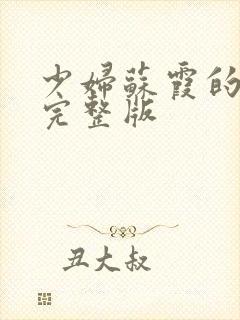 少婦蘇霞的
完整版
丑大叔